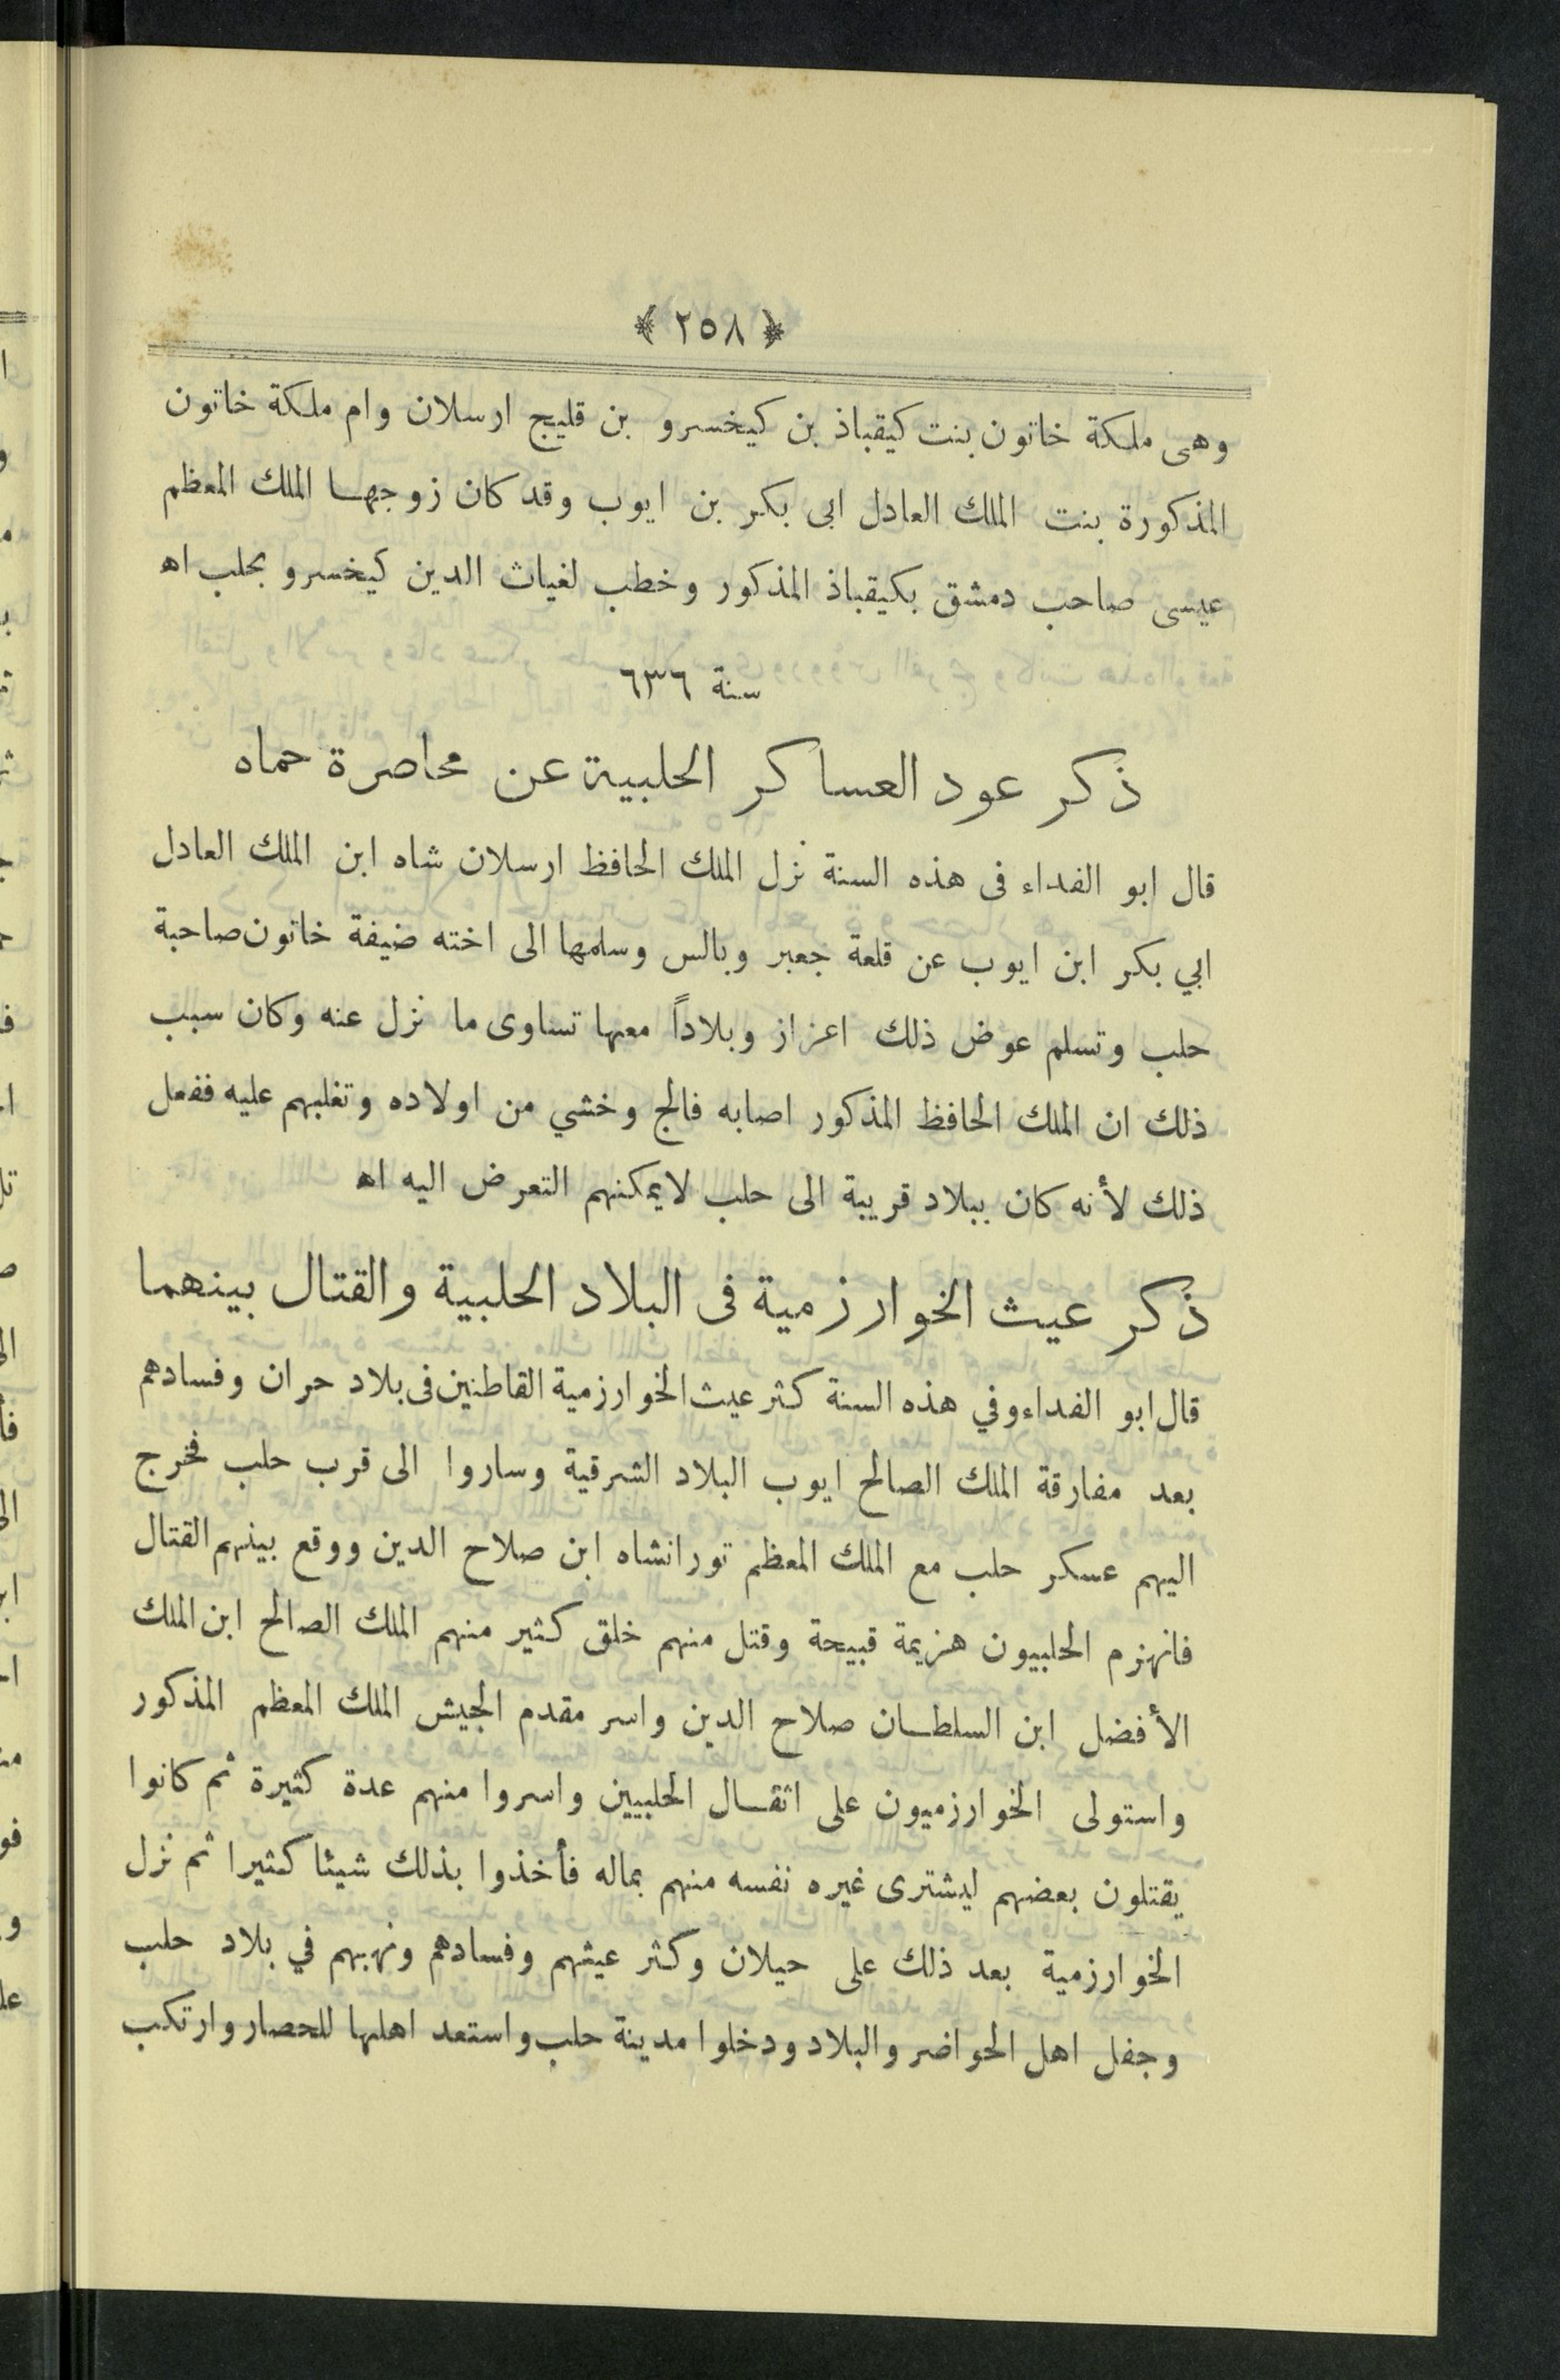 ﴿ ٢٥٨ ﴾
وهى ملكة خاتون بنت كيقباذ بن كيخسرو بن قليج ارسلان وام ملكة خاتون
المذكورة بنت الملك العادل ابى بكر بن ايوب وقد كان زوجهـا الملك المعظم
عيسى صاحب دمشق بكيقباذ المذكور وخطب لغياث الدين كيخسرو بحلب اه
سنة ٦٣٦
ذكر عود العساكر الحلبية عن محاصرة حماه
قال ابو الفداء فى هذه السنة نزل الملك الحافظ ارسلان شاه ابن الملك العادل
ابي بكر ابن ايوب عن قلعة جعبر وبالس وسلمها الى اخته ضيفة خاتون صاحبة
حلب وتسلم عوض ذلك اعزاز وبلاداً معها تساوى ما نزل عنه وكان سبب
ذلك ان الملك الحافظ المذكور اصابه فالج وخشي من اولاده وتغلبهم عليه ففعل
ذلك لأنه كان ببلاد قريبة الى حلب لايمكنهم التعرض اليه اه
ذكر عيث الخوارزمية فى البلاد الحلبية والقتال بينهما
قال ابو الفداء وفي هذه السنة كثر عيث الخوارزمية القاطنين فى بلاد حران وفسادهم
بعد مفارقة الملك الصالح ايوب البلاد الشرقية وساروا الى قرب حلب فخرج
اليهم عسكر حلب مع الملك المعظم تورانشاه ابن صلاح الدين ووقع بينهم القتال
فانهزم الحلبيون هزيمة قبيحة وقتل منهم خلق كثير منهم الملك الصالح ابن الملك
الأفضل ابن السلطـان صلاح الدين واسر مقدم الجيش الملك المعظم المذكور
واستولى الخوارزميون على اثقـال الحلبيين واسروا منهم عدة كثيرة ثم كانوا
يقتلون بعضهم ليشترى غيره نفسه منهم بماله فأخذوا بذلك شيئا كثيرا ثم نزل
الخوارزمية بعد ذلك على حيلان وكثر عيثهم وفسادهم ونهبهم في بلاد حلب
وجفل اهل الحواضر والبلاد ودخلوا مدينة حلب واستعد اهلها للحصار وارتكب